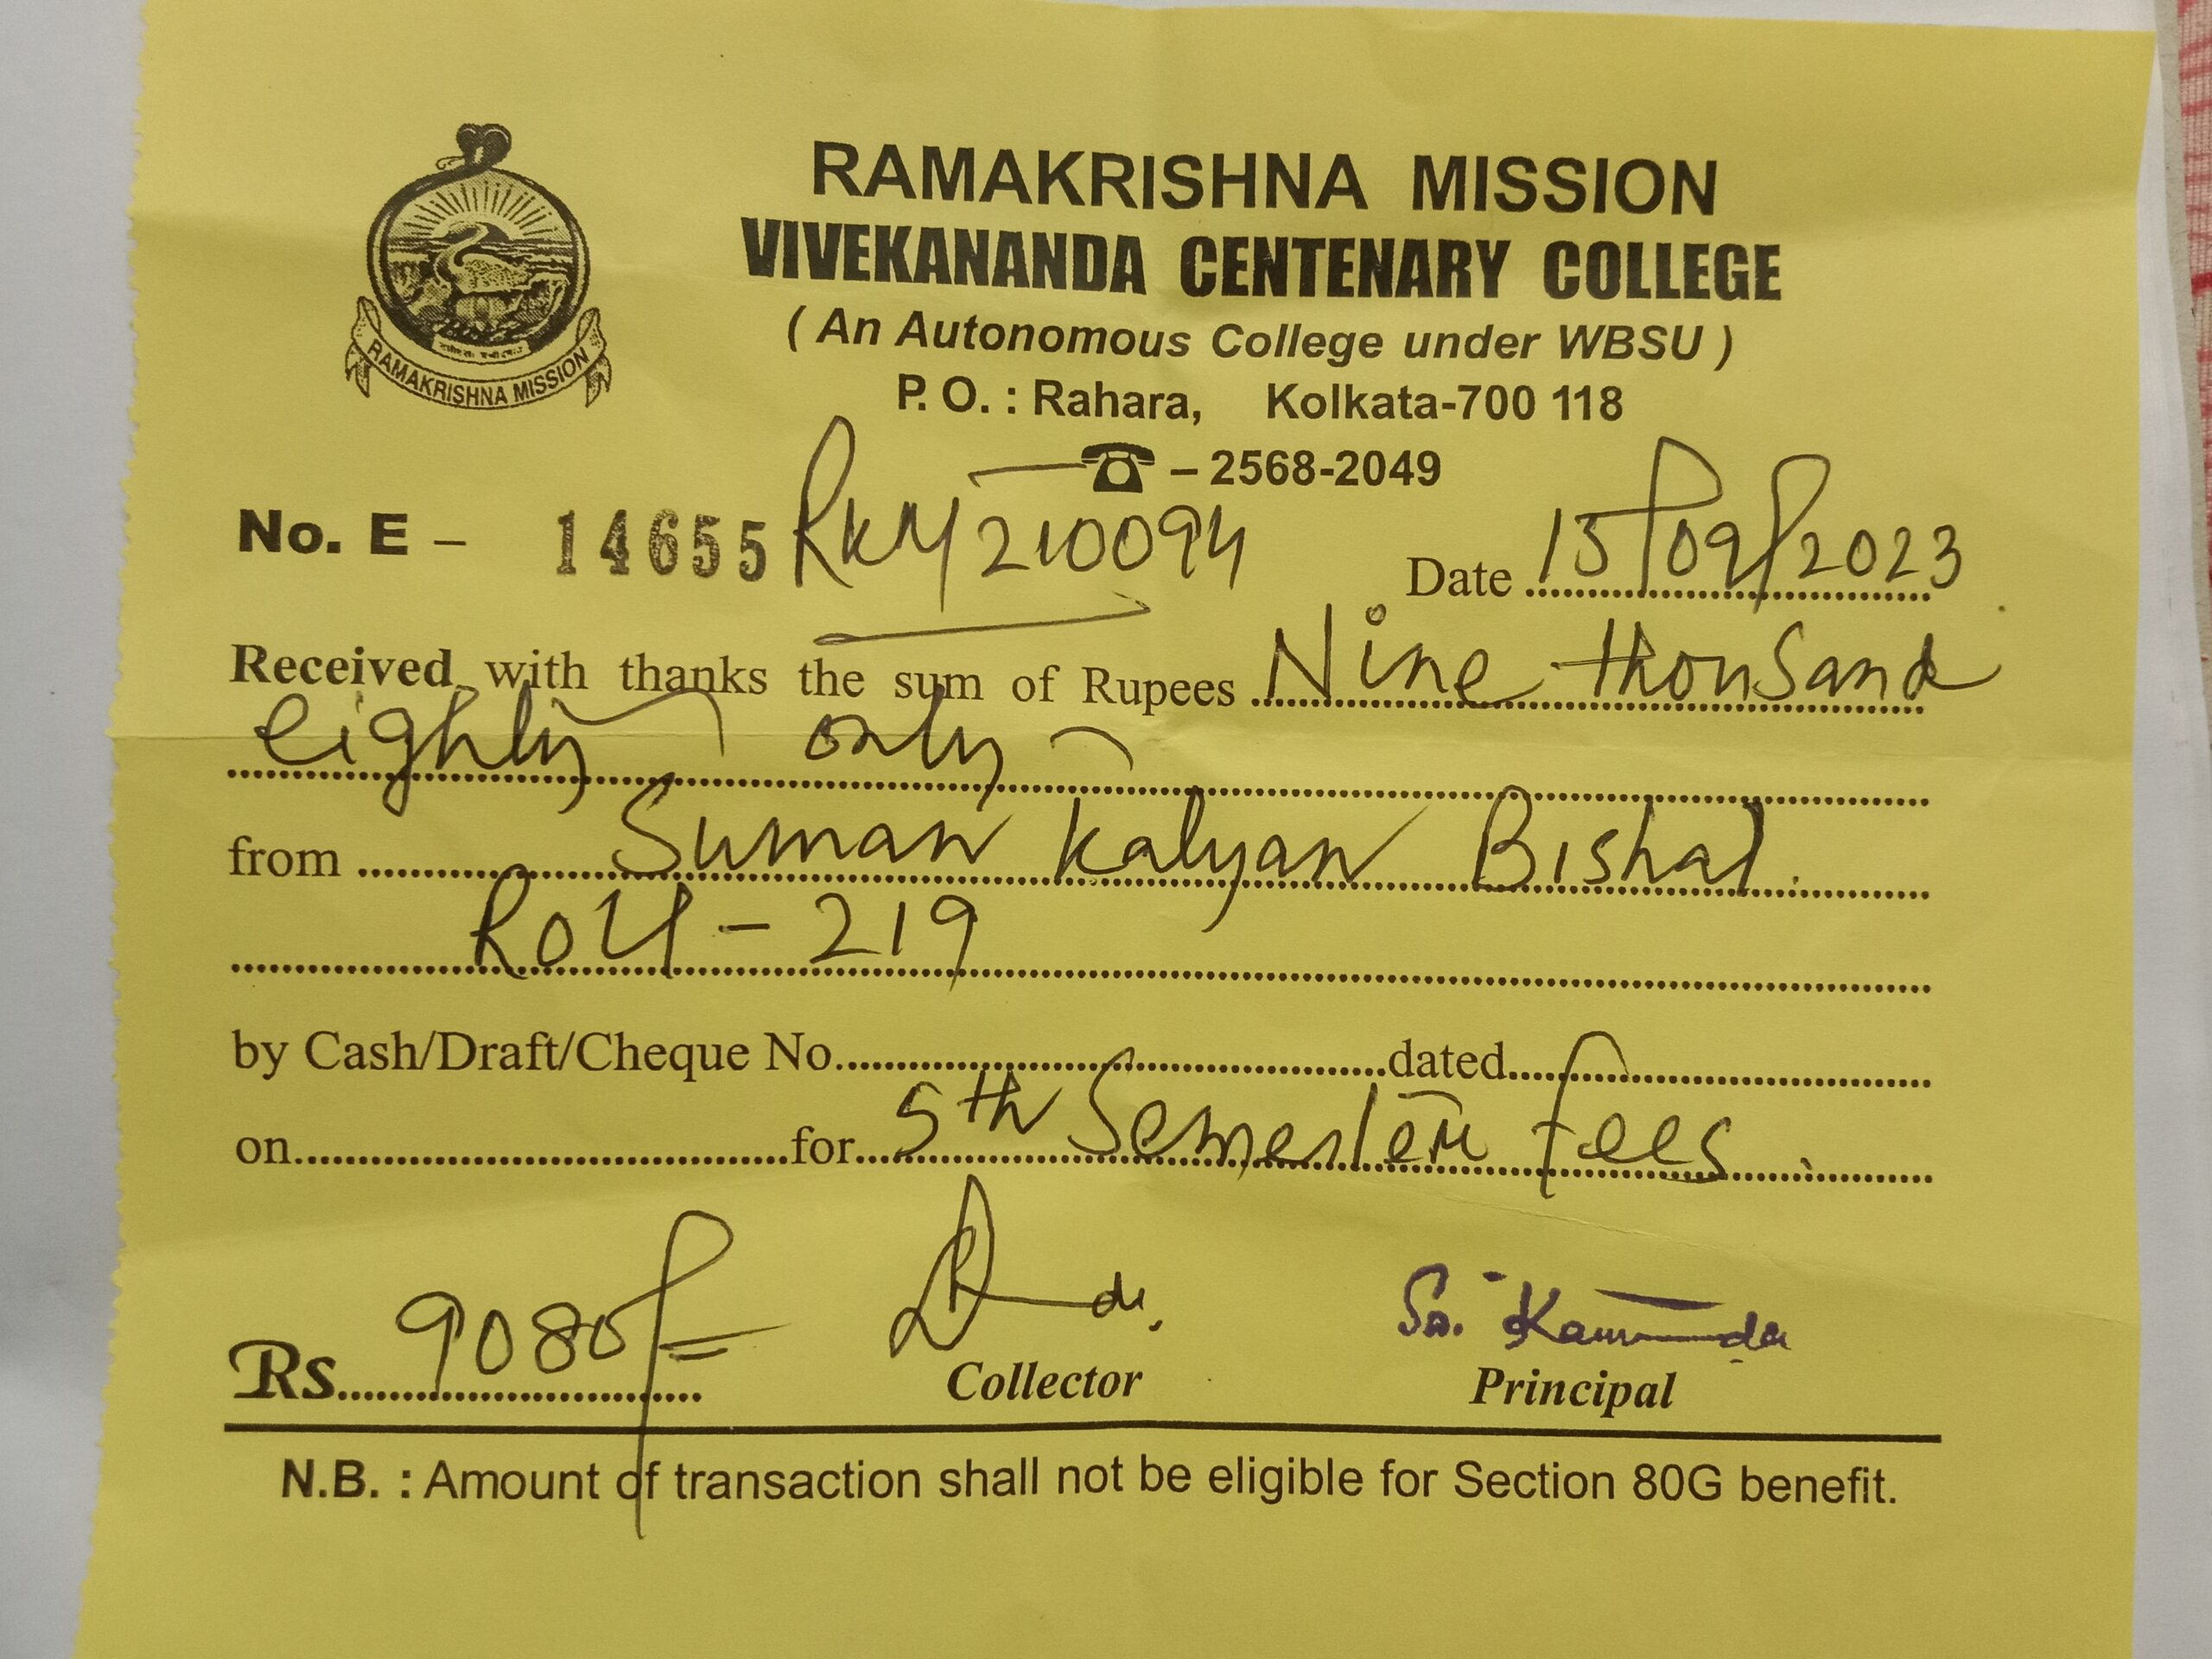 RAMAKRISHNA MISSION
RAMAKRISHNA MISSION
VIVEKANANDA CENTENARY COLLEGE
( An Autonomous College under WBSU )
P. O. : Rahara, Kolkata-700 118
☎ – 2568-2049
No. E – 14655 RKM/210094
Date 15/09/2023
Received with thanks the sum of Rupees Nine thousand
eighty only
from Suman Kalyan Bishal.
Roll - 219
by Cash/Draft/Cheque No. dated
on for 5th Semester fees.
Rs. 9080/=
Collector Principal
N.B. : Amount of transaction shall not be eligible for Section 80G benefit.